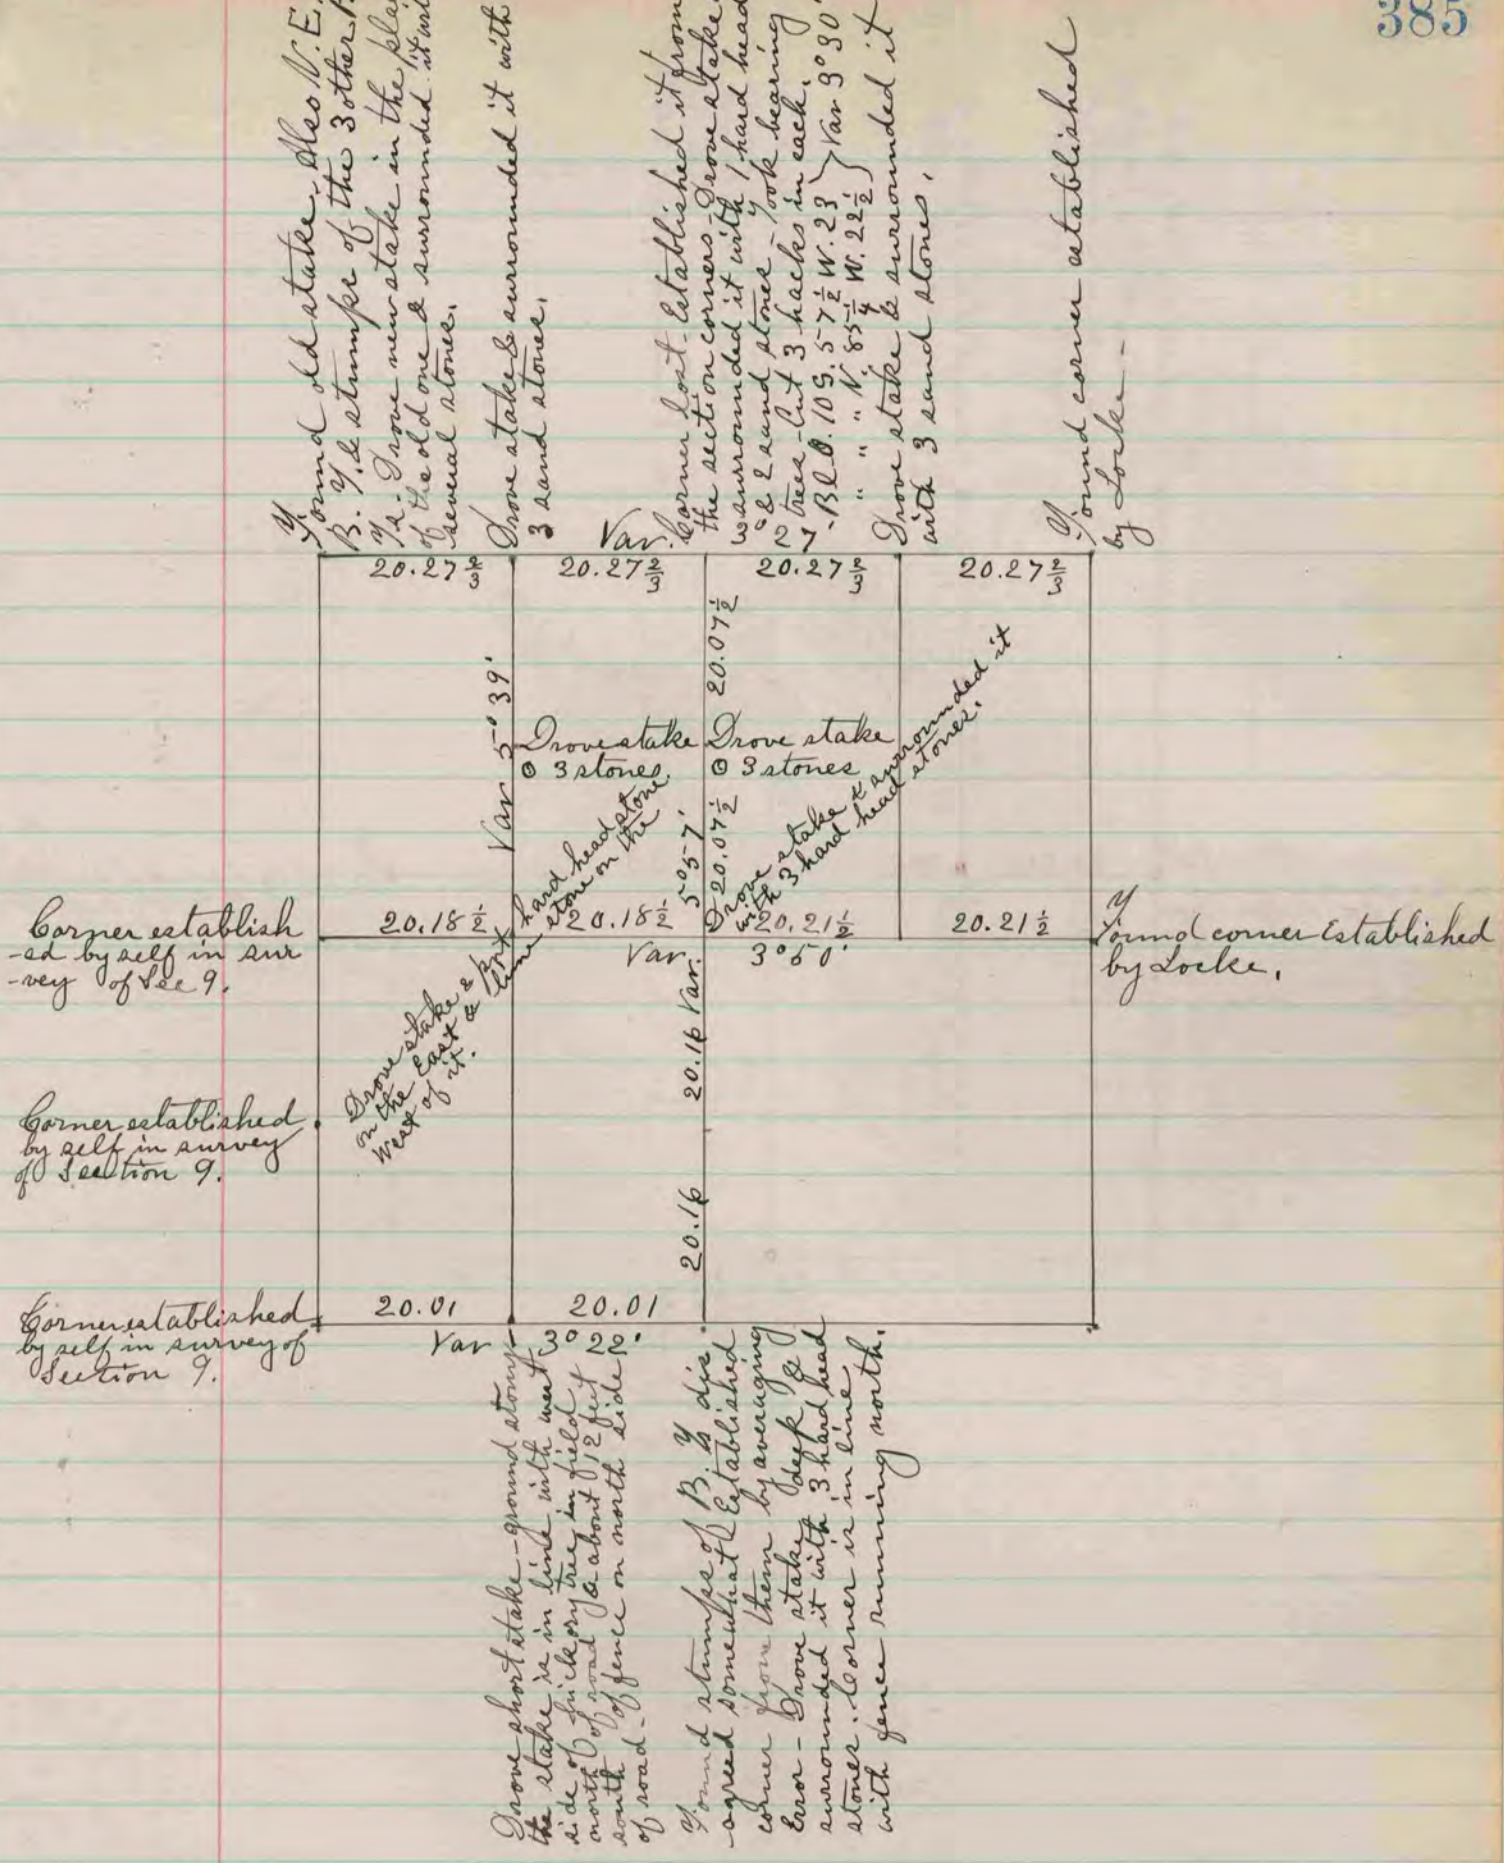 385
Found old stake. Also N.E.
B. Y. & stumps of the 3 other B.
Ys. Drove new stake in the pla
of the old one & surrounded it wi
several stones.
Drove stake & surrounded it with
3 sand stones.
Var.
Corner lost. Established it from
the section corners - Drove stake
surrounded it with 1 hard head
& 2 sand stones - Took bearing
27 trees - Cut 3 hacks in each.
Bl O. 10 S. 57½ W. 23 } Var 3° 30'
" " " N. 85¼ W. 22½
Drove stake & surrounded it
with 3 sand stones.
Found corner established
by Locke -
20.27⅔
20.27⅔
20.27⅔
20.27⅔
20.07½
Var 5° 39'
Drove stake
⊙ 3 stones.
Drove stake
⊙ 3 stones
Drove stake & surrounded it
with 3 hard head stones.
20.07½
5° 57'
Corner establish
-ed by self in sur
-vey of Sec 9.
20.18½
20.18½
20.21½
20.21½
Found corner Established
by Locke.
Var. 3° 50'
Drove stake & put hard head stone
on the East & lime stone on the
West of it.
20.16 Var.
Corner established
by self in survey
of Section 9.
20.16
Corner established
by self in survey of
Section 9.
20.01
20.01
Var 3° 22'
Drove short stake - ground stony
the stake is in line with west
side of hickory tree in field
north of road & about 12 feet
south of fence on north side
of road -
Found stumps of B. Ys dis
agreed somewhat Established
corner from them by averaging
Error - Drove stake deep &
surrounded it with 3 hard head
stones. Corner is in line
with fence running north.